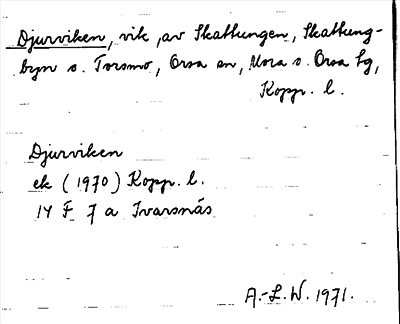 Djurviken, vik, av Skattungen, Skattung-
byn o. Torsmo, Orsa sn, Mora o. Orsa tg,
Kopp. l.
Djurviken
ek (1970) Kopp. l.
14 F 7 a Ivarsnäs
A.-L.W. 1971.